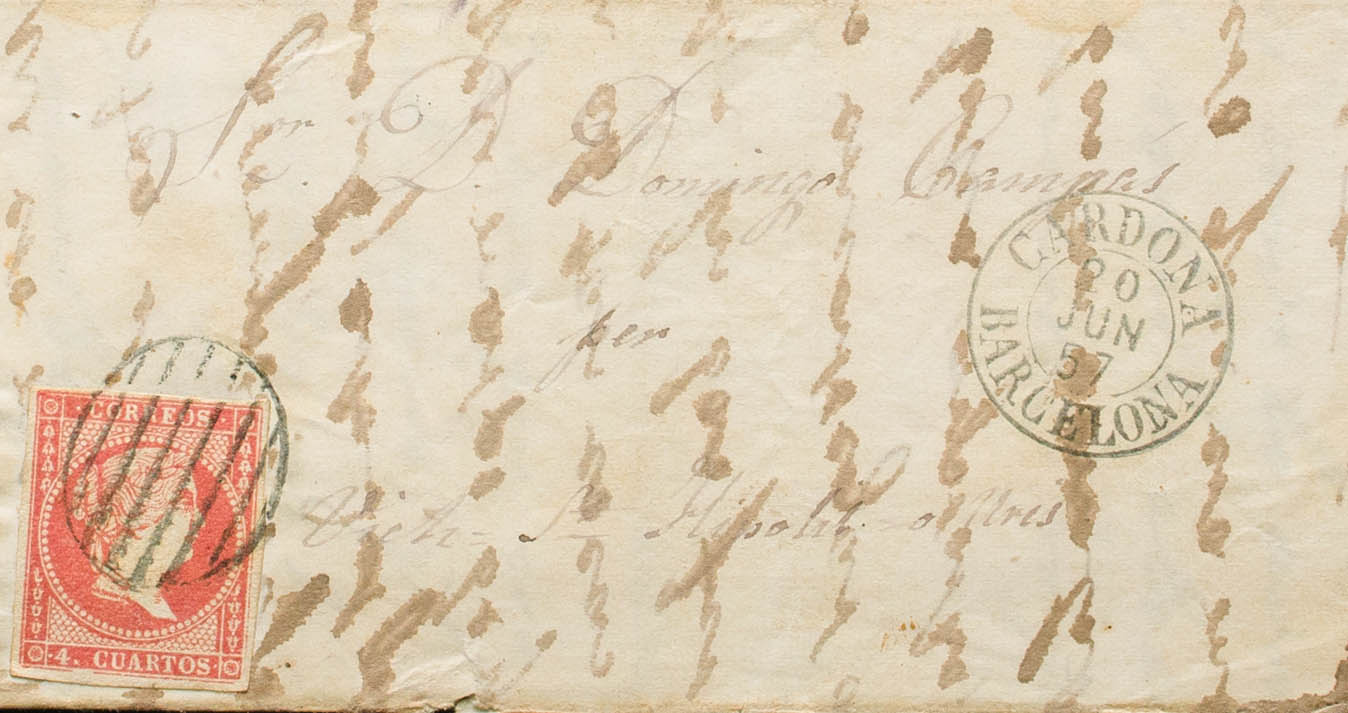 S.or D. Domingo Campás
CARDONA
20
JUN
57
BARCELONA
per
CORREOS
Vich - S.n Hipolit
4. CUARTOS